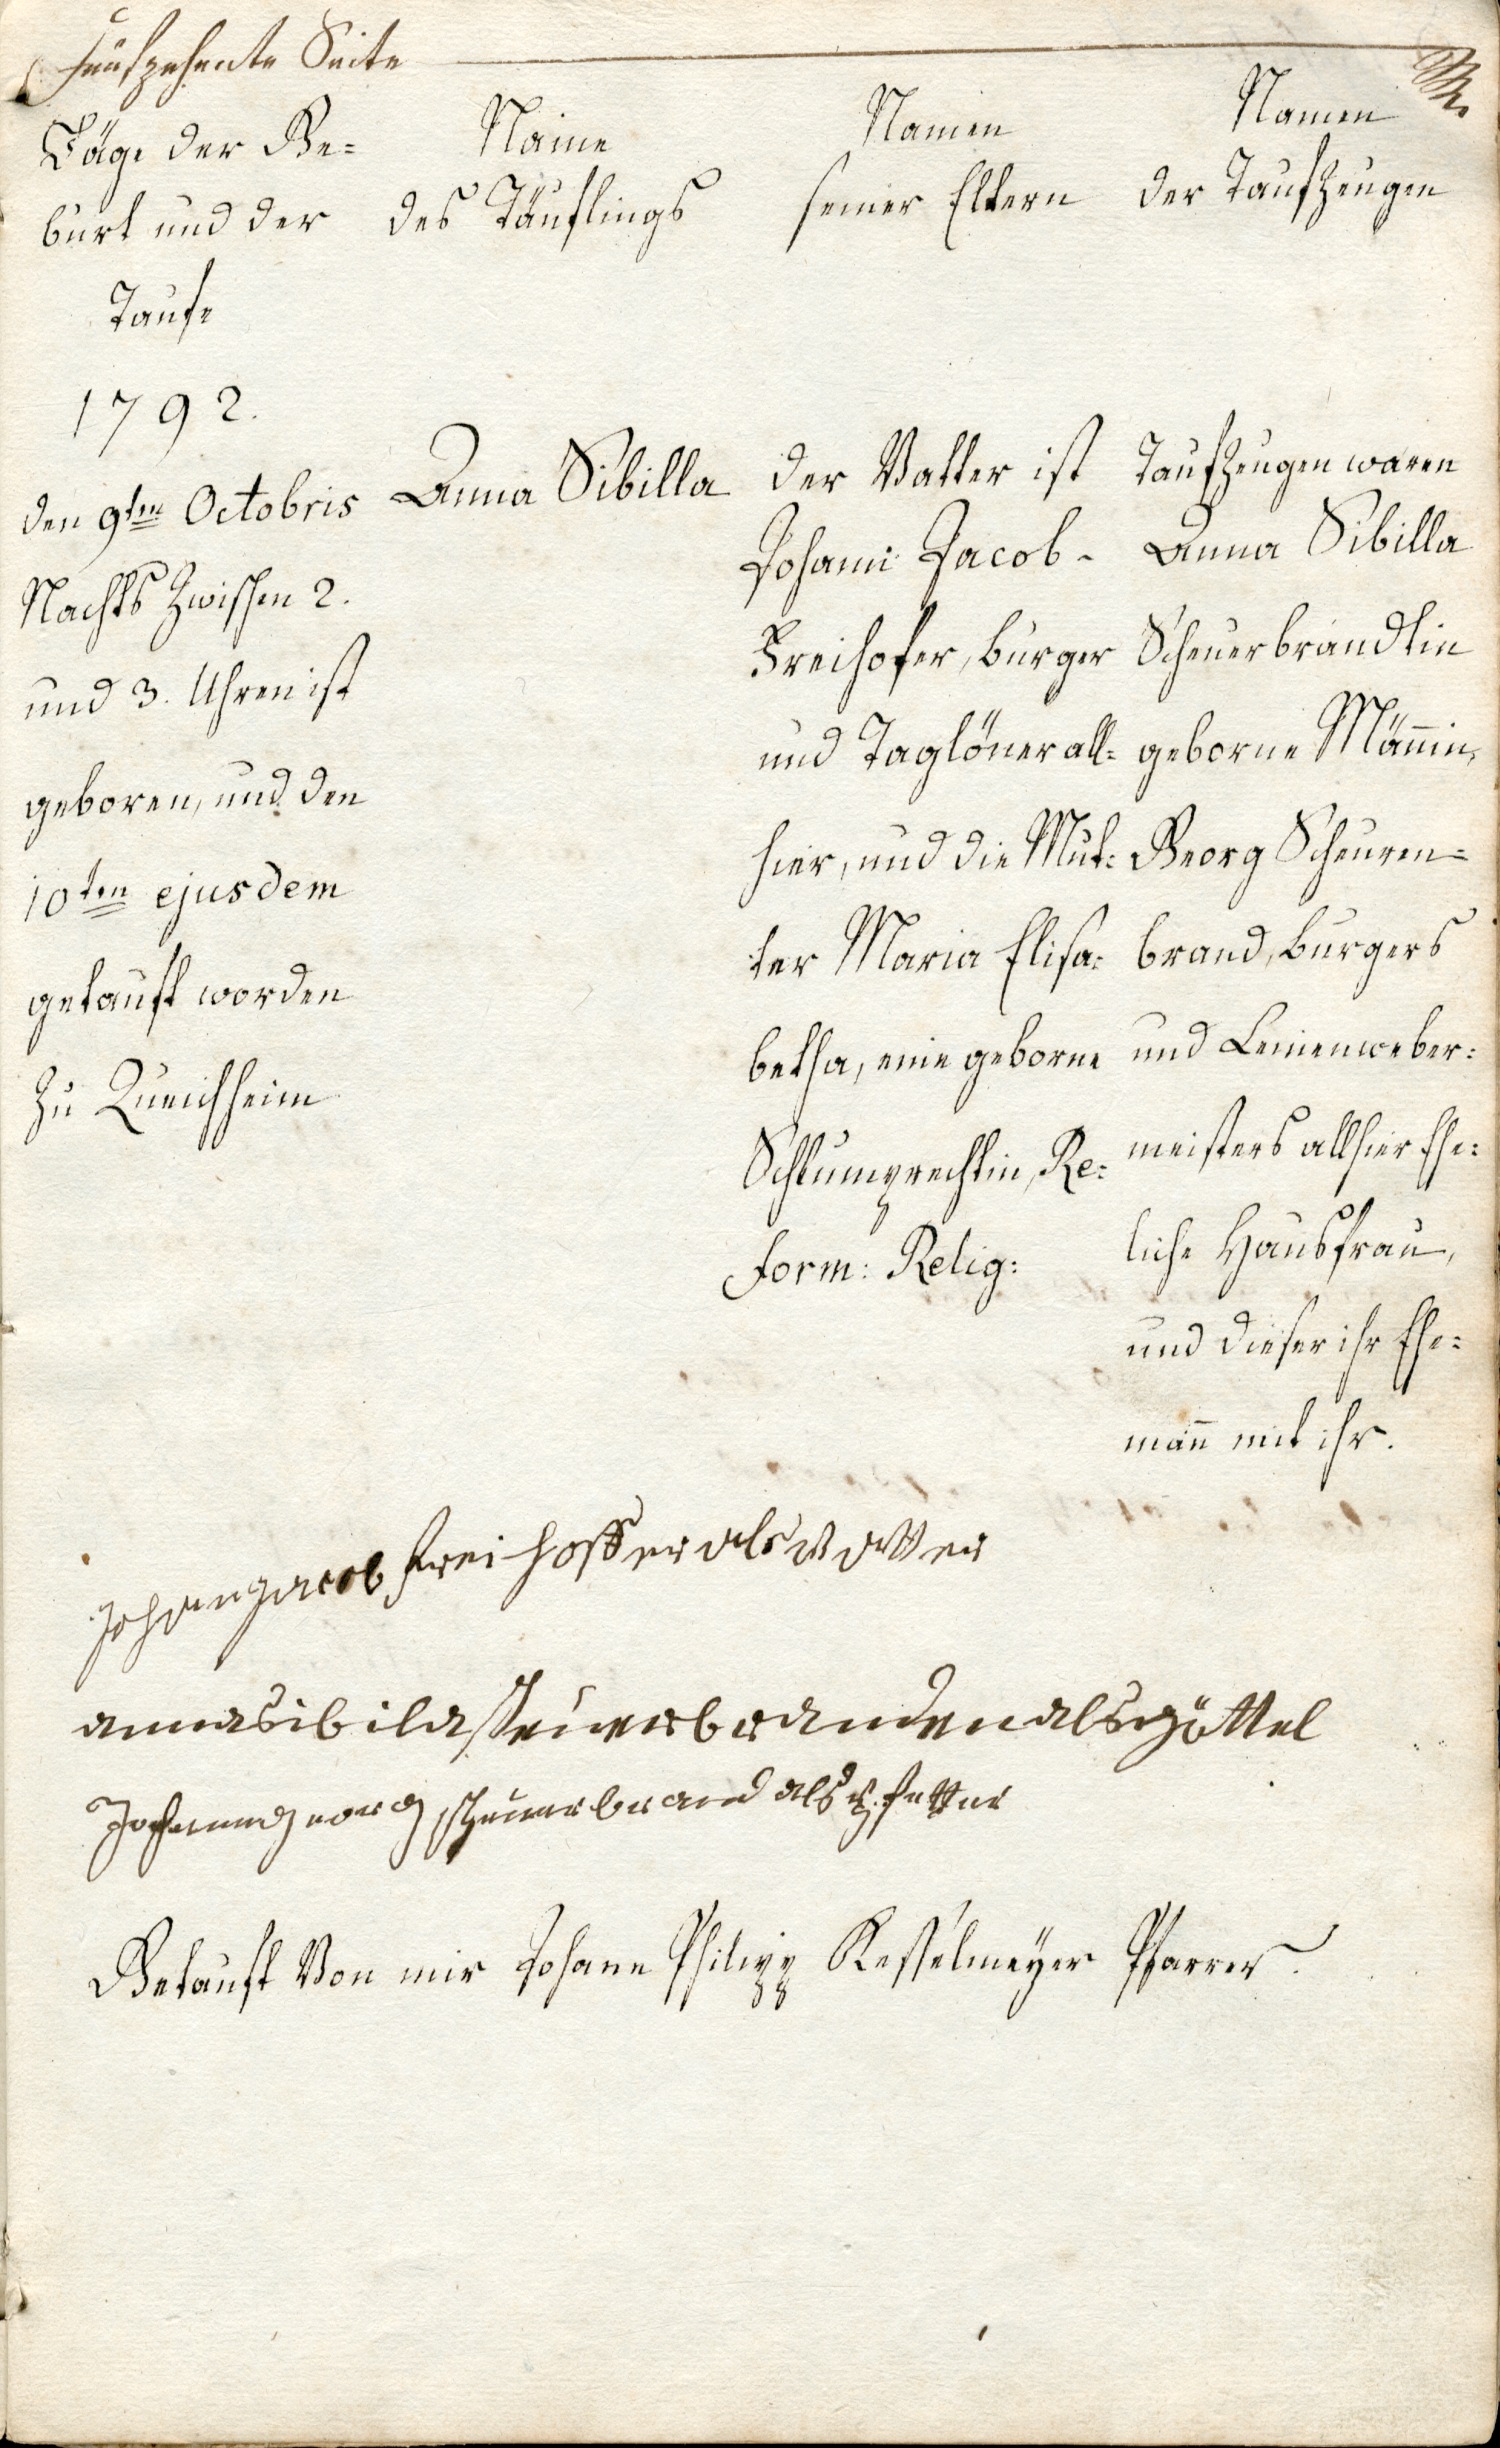 Fünfzehente Seite
Täge der Ge=
burt und der
Taufe
Name
des Täuflings
Namen
seiner Eltern
Namen
der Taufzeugen
1792.
den 9ten Octobris
Nachts zwischen 2.
und 3. Uhren ist
geboren, und den
10ten ejusdem
getauft worden
zu Queichheim
Anna Sibilla
der Vatter ist
Johann Jacob
Freihofer, burger
und Taglöner all=
hier, und die Mut=
ter Maria Elisa=
betha, eine geborne
Schlumprechtin, Re=
form: Relig:
Taufzeugen waren
Anna Sibilla
Scheuerbrandtin
geborne Männin,
Georg Scheuren=
brand, burgers
und Leinenweber=
meisters allhier Ehe=
liche Hausfrau,
und dieser ihr Ehe=
mann mit ihr.
Johan Jacob freihoffer als vatter
anna sibila scheuerbranden als göttel
Johann georg scheuerbrand als pfetter
Getauft Von mir Johann Philipp Kesselmeÿer Pfarrer.